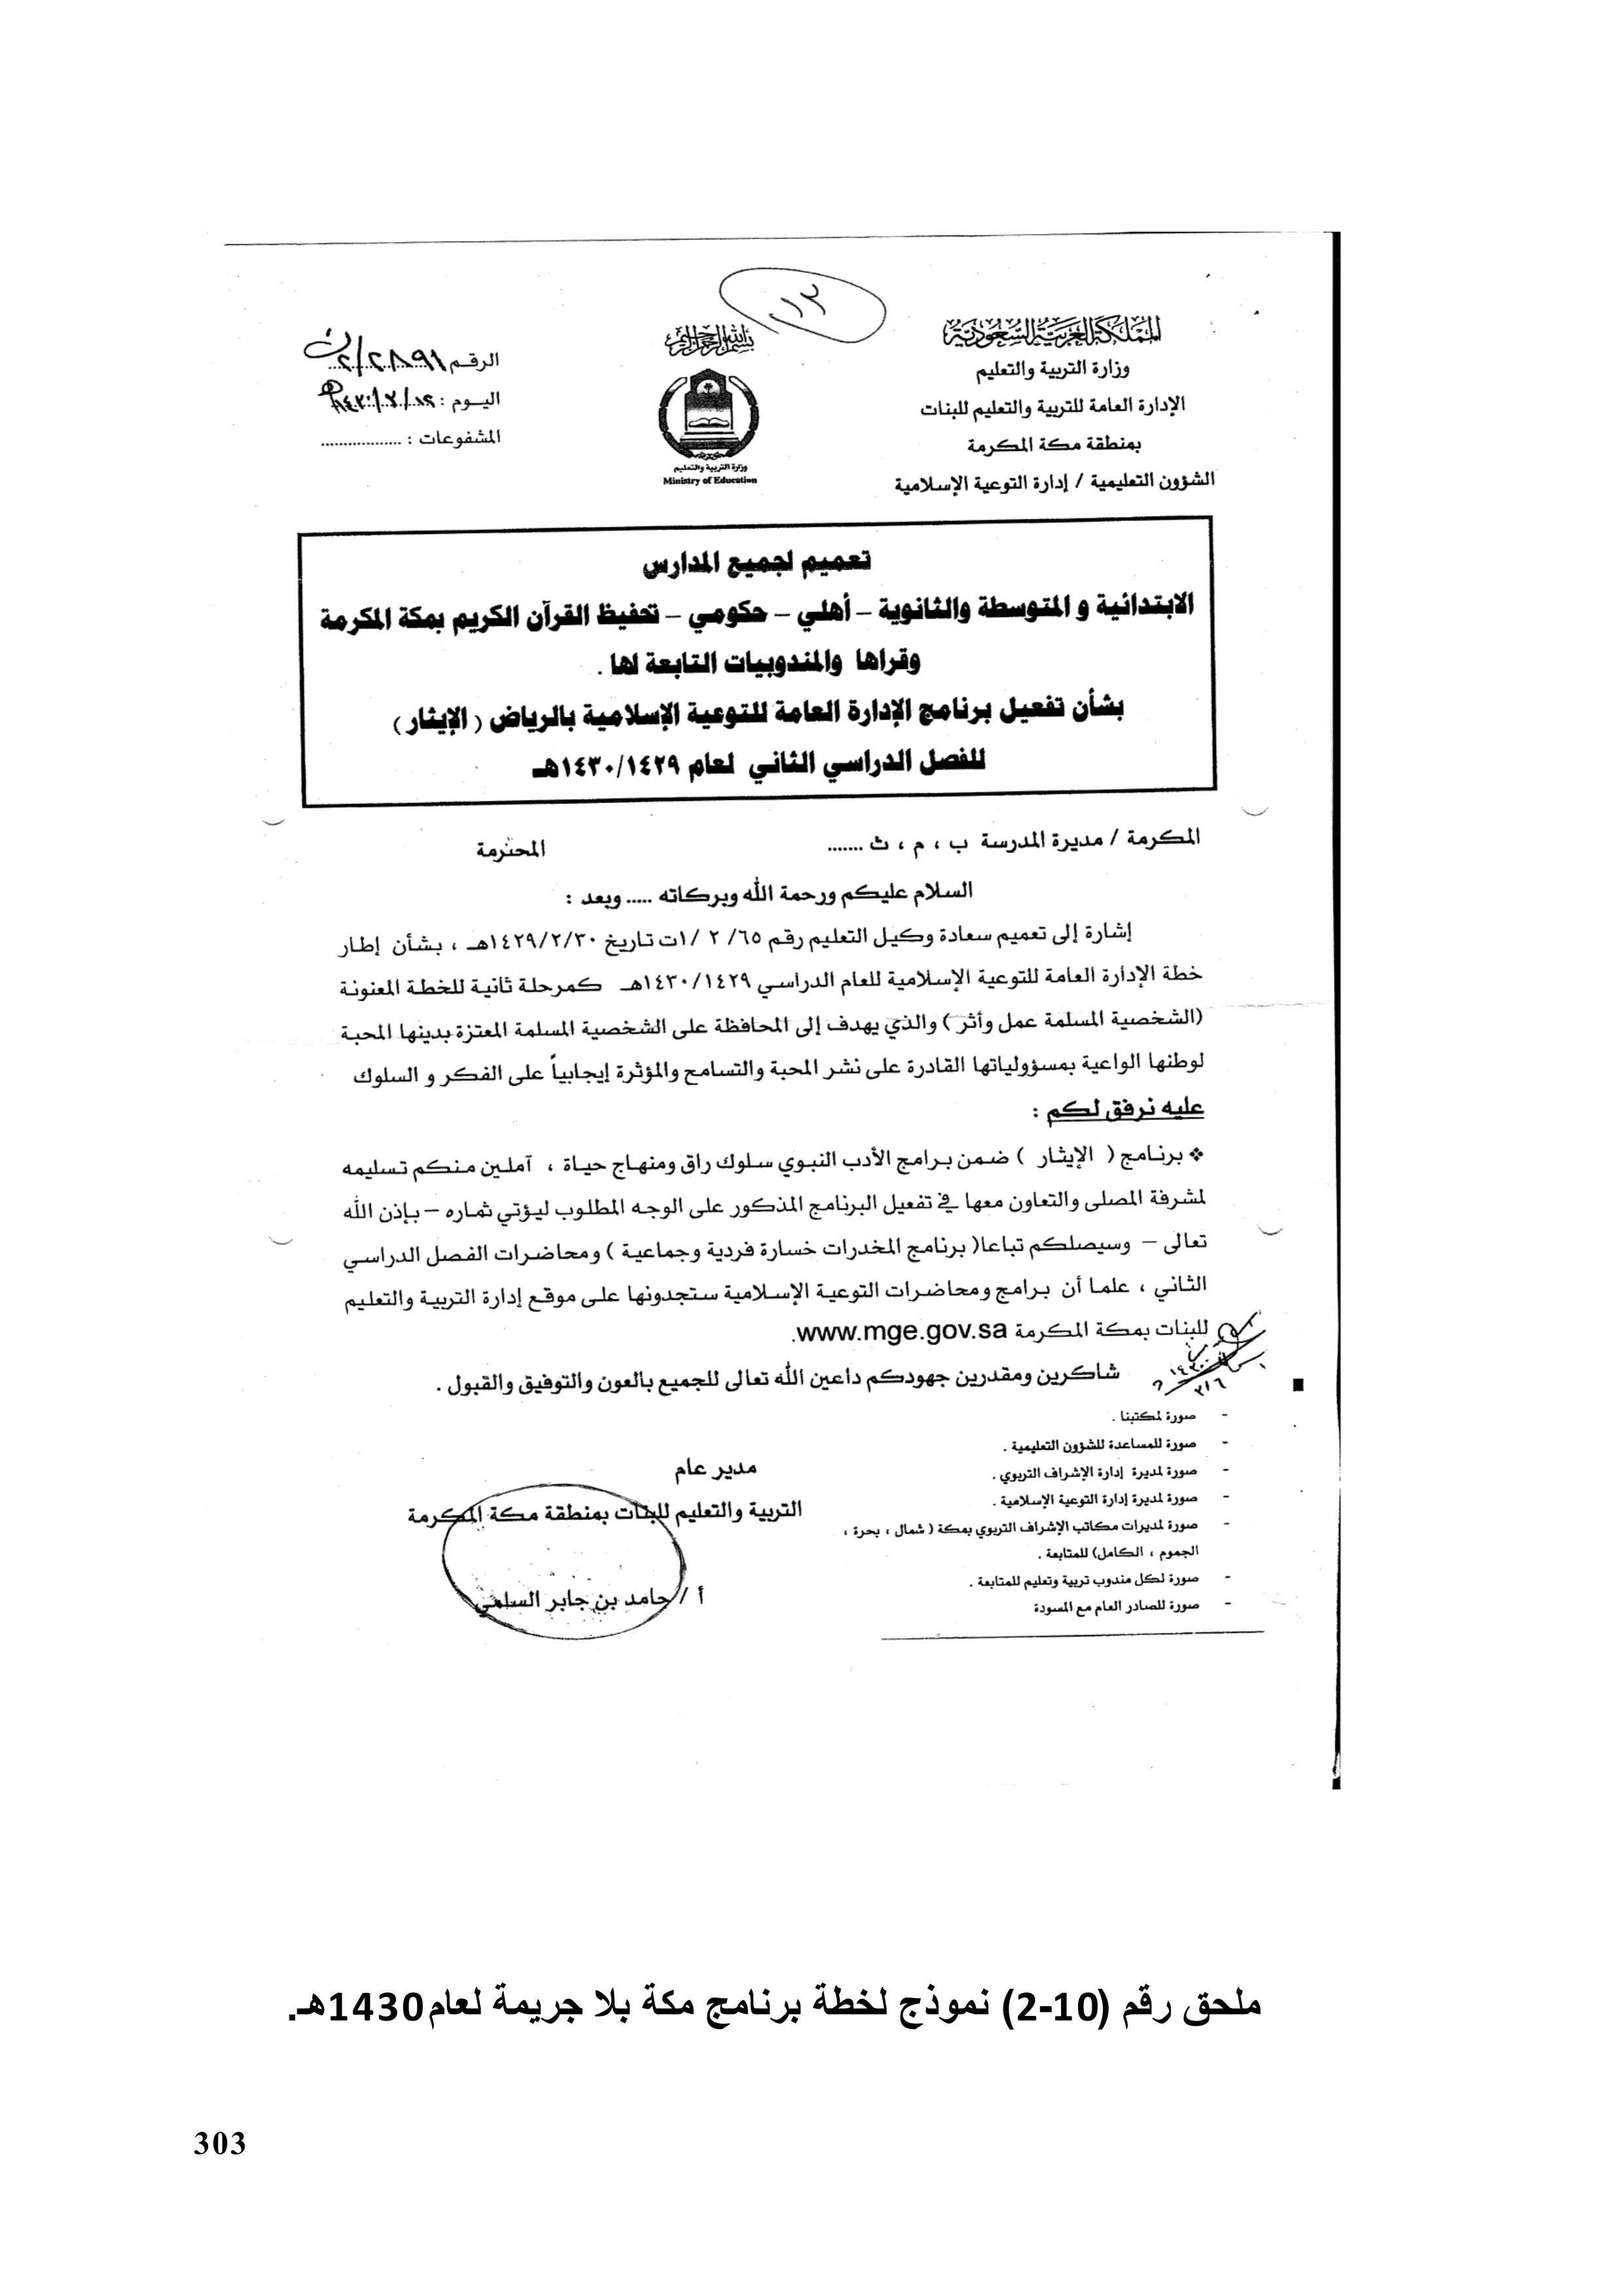 ١٣
المملكة العربية السعودية
وزارة التربية والتعليم
الإدارة العامة للتربية والتعليم للبنات
بمنطقة مكة المكرمة
الشؤون التعليمية / إدارة التوعية الإسلامية
بسم الله الرحمن الرحيم
وزارة التربية والتعليم
Ministry of Education
الرقم
اليوم :
المشفوعات : .................
تعميم لجميع المدارس
الابتدائية و المتوسطة والثانوية – أهلي – حكومي – تحفيظ القرآن الكريم بمكة المكرمة
وقراها والمندوبيات التابعة لها .
بشأن تفعيل برنامج الإدارة العامة للتوعية الإسلامية بالرياض ( الإيثار )
للفصل الدراسي الثاني لعام ١٤٣٠/١٤٢٩هـ
المكرمة / مديرة المدرسة ب ، م ، ث ....... المحترمة
السلام عليكم ورحمة الله وبركاته ..... وبعد :
إشارة إلى تعميم سعادة وكيل التعليم رقم ٦٥/ ٢ /١ت تاريخ ١٤٢٩/٢/٣٠هـ ، بشأن إطار
خطة الإدارة العامة للتوعية الإسلامية للعام الدراسي ١٤٣٠/١٤٢٩هـ كمرحلة ثانية للخطة المعنونة
(الشخصية المسلمة عمل وأثر ) والذي يهدف إلى المحافظة على الشخصية المسلمة المعتزة بدينها المحبة
لوطنها الواعية بمسؤولياتها القادرة على نشر المحبة والتسامح والمؤثرة إيجابياً على الفكر و السلوك
عليه نرفق لكم :
❖ برنامج ( الإيثار ) ضمن برامج الأدب النبوي سلوك راق ومنهاج حياة ، آملين منكم تسليمه
لمشرفة المصلى والتعاون معها في تفعيل البرنامج المذكور على الوجه المطلوب ليؤتي ثماره – بإذن الله
تعالى – وسيصلكم تباعا( برنامج المخدرات خسارة فردية وجماعية ) ومحاضرات الفصل الدراسي
الثاني ، علما أن برامج ومحاضرات التوعية الإسلامية ستجدونها على موقع إدارة التربية والتعليم
للبنات بمكة المكرمة www.mge.gov.sa.
شاكرين ومقدرين جهودكم داعين الله تعالى للجميع بالعون والتوفيق والقبول .
- صورة لمكتبنا .
- صورة للمساعدة للشؤون التعليمية .
- صورة لمديرة إدارة الإشراف التربوي .
- صورة لمديرة إدارة التوعية الإسلامية .
- صورة لمديرات مكاتب الإشراف التربوي بمكة ( شمال ، بحرة ،
الجموم ، الكامل) للمتابعة .
- صورة لكل مندوب تربية وتعليم للمتابعة .
- صورة للصادر العام مع المسودة
مدير عام
التربية والتعليم للبنات بمنطقة مكة المكرمة
أ / حامد بن جابر السلمي
ملحق رقم (10-2) نموذج لخطة برنامج مكة بلا جريمة لعام1430هـ.
303